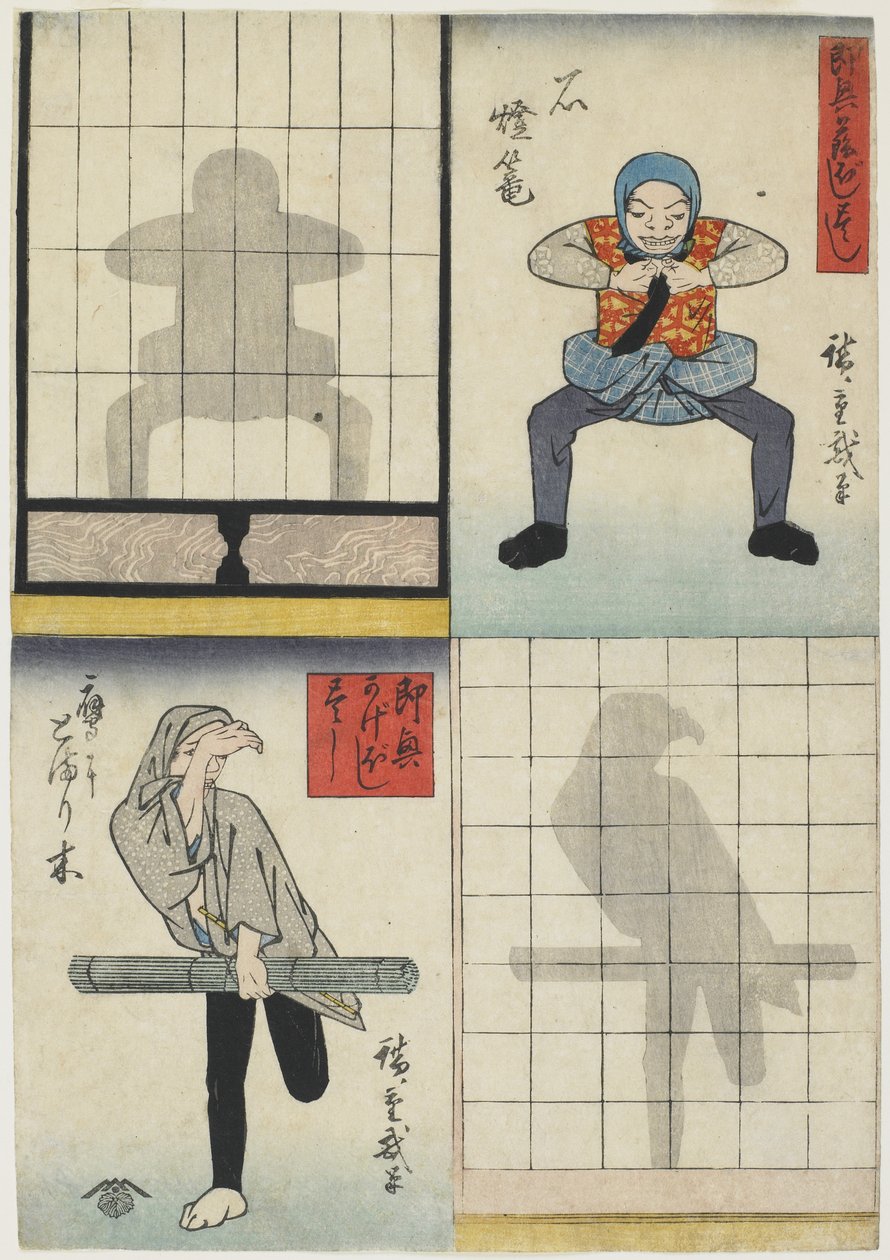 即興かげぼし尽し
石
燈篭
廣重戯筆
即興
かげぼし
尽し
鷹に
とまり木
廣重戯筆